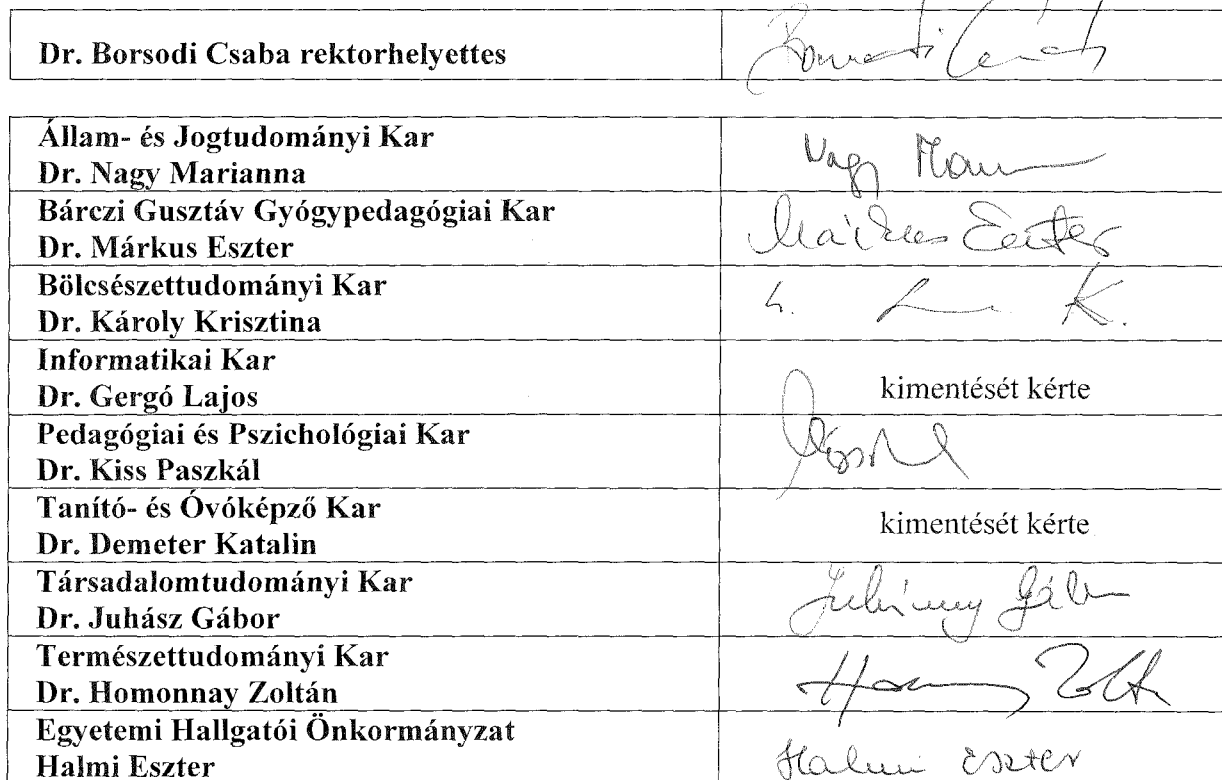 Dr. Borsodi Csaba rektorhelyettes
Állam- és Jogtudományi Kar
Dr. Nagy Marianna
Nagy
Bárczi Gusztáv Gyógypedagógiai Kar
Dr. Márkus Eszter
Márkus Eszter
Bölcsészettudományi Kar
Dr. Károly Krisztina
K.
Informatikai Kar
Dr. Gergó Lajos
kimentését kérte
Pedagógiai és Pszichológiai Kar
Dr. Kiss Paszkál
Tanító- és Óvóképző Kar
Dr. Demeter Katalin
kimentését kérte
Társadalomtudományi Kar
Dr. Juhász Gábor
Juhász Gábor
Természettudományi Kar
Dr. Homonnay Zoltán
Egyetemi Hallgatói Önkormányzat
Halmi Eszter
Halmi Eszter